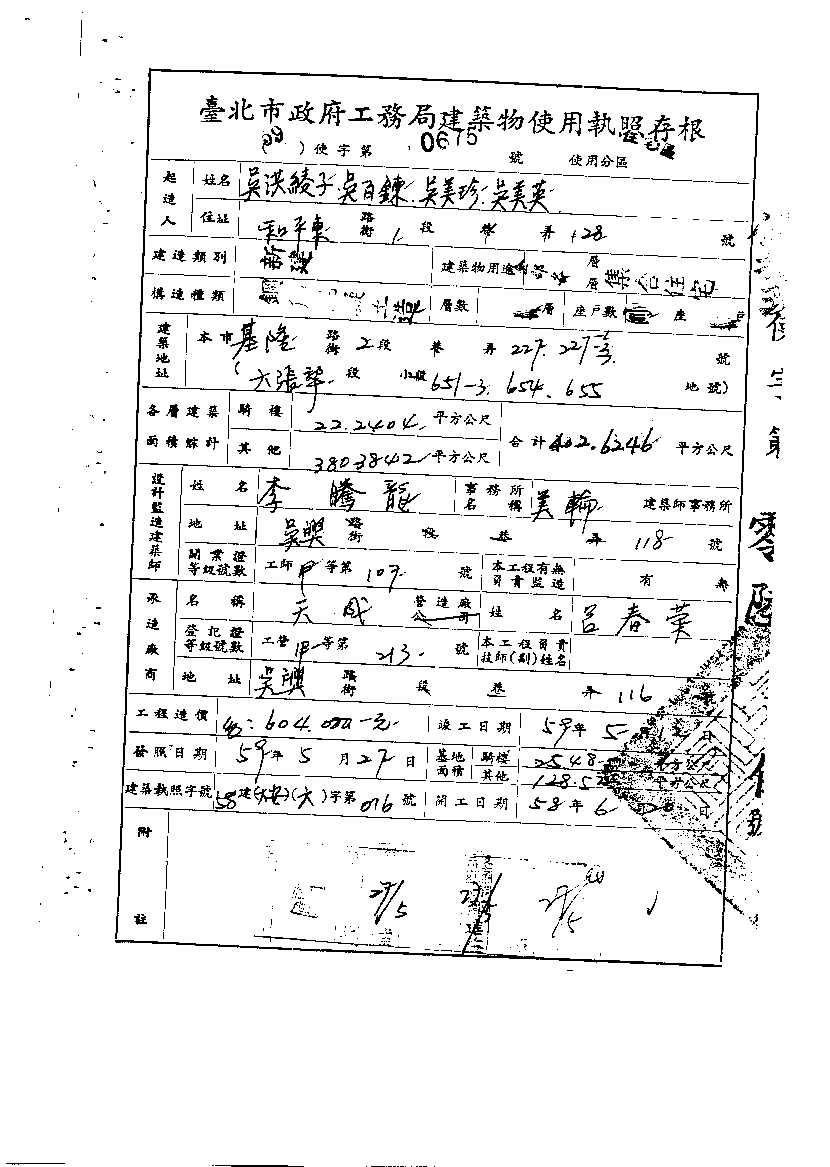 臺北市政府工務局建築物使用執照存根
)使字第 0675 號 使用分區
起造人 姓名 吳洪綾子.吳百鍊.吳美珍.吳美英
住址 和平東 路街 1 段 巷 弄 128 號
建造類別 新 建築物用途 層 層 集合住宅
構造種類 鋼 土造 層數 層 座戶數 座
建築地址 本市 基隆 路街 2段 巷 弄 227. 227-3. 號
(六張犁 段 小段 651-3. 654. 655 地號)
各層建築面積綜計 騎樓 22.2404 平方公尺 合計 402.6246 平方公尺
其他 380.3842 平方公尺
設計監造建築師 姓名 李騰龍 事務所名稱 美輪 建築師事務所
地址 吳興 路街 段 巷 弄 118 號
開業證等級號數 工師 甲 等第 107 號 本工程有無負責監造 有 無
承造廠商 名稱 天成 營造廠公司 姓名 呂春榮
登記證等級號數 工營 甲 等第 213 號 本工程負責技師(副)姓名
地址 吳興 路街 段 巷 弄 116
工程造價 604.000元 竣工日期 59年 5 12 日
發照日期 59年 5 月 27 日 基地面積 騎樓 25.48 平方公尺
其他 128.52 平方公尺
建築執照字號 58 建(大安)(六)字第 016 號 開工日期 58年 6 20 日
附註
27/5 27/5 27/5
使字第
零陸
號